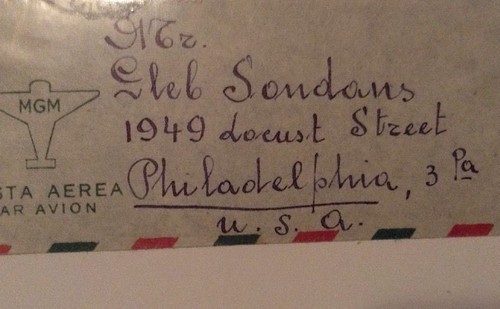 Mr.
Gleb Sondans
1949 Locust Street
Philadelphia, 3 Pa
U. S. A.
MGM
STA AEREA
AR AVION